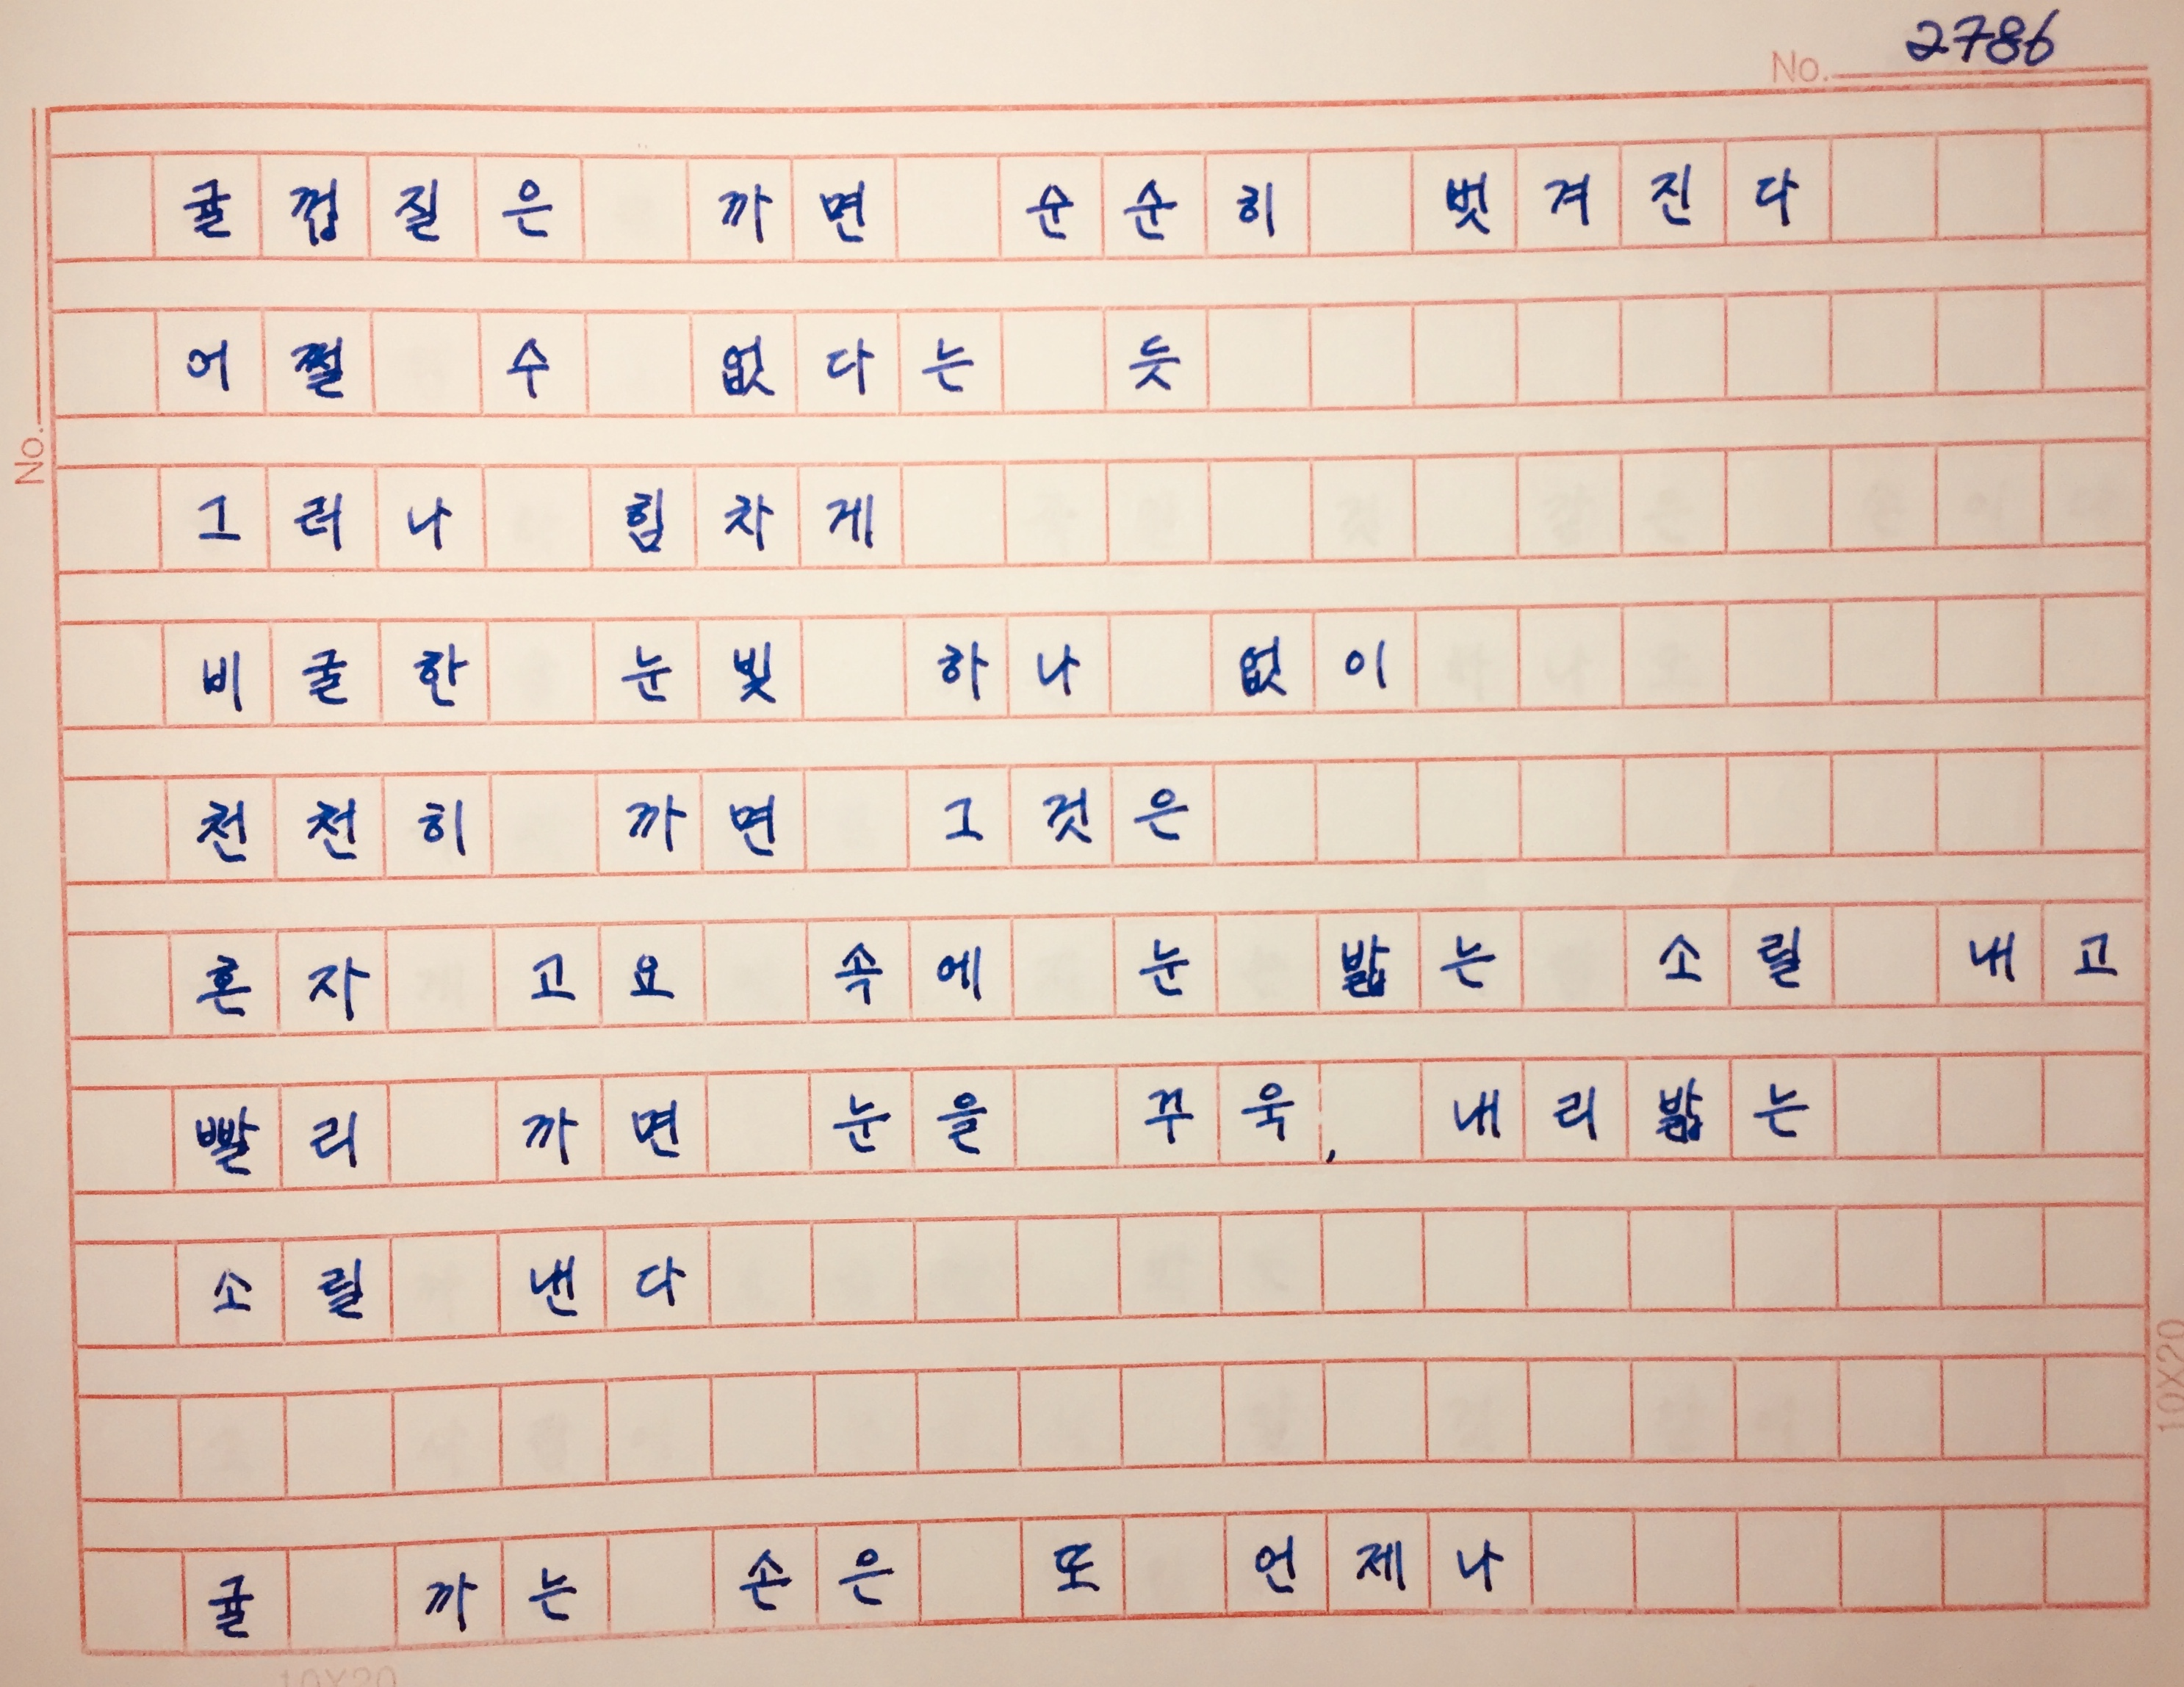 No. 2786
귤껍질은 까면 순순히 벗겨진다
어쩔 수 없다는 듯
그러나 힘차게
비굴한 눈빛 하나 없이
천천히 까면 그것은
혼자 고요 속에 눈 밟는 소릴 내고
빨리 까면 눈을 꾸욱, 내리밟는
소릴 낸다
귤 까는 손은 또 언제나
No.
10X20
10X20